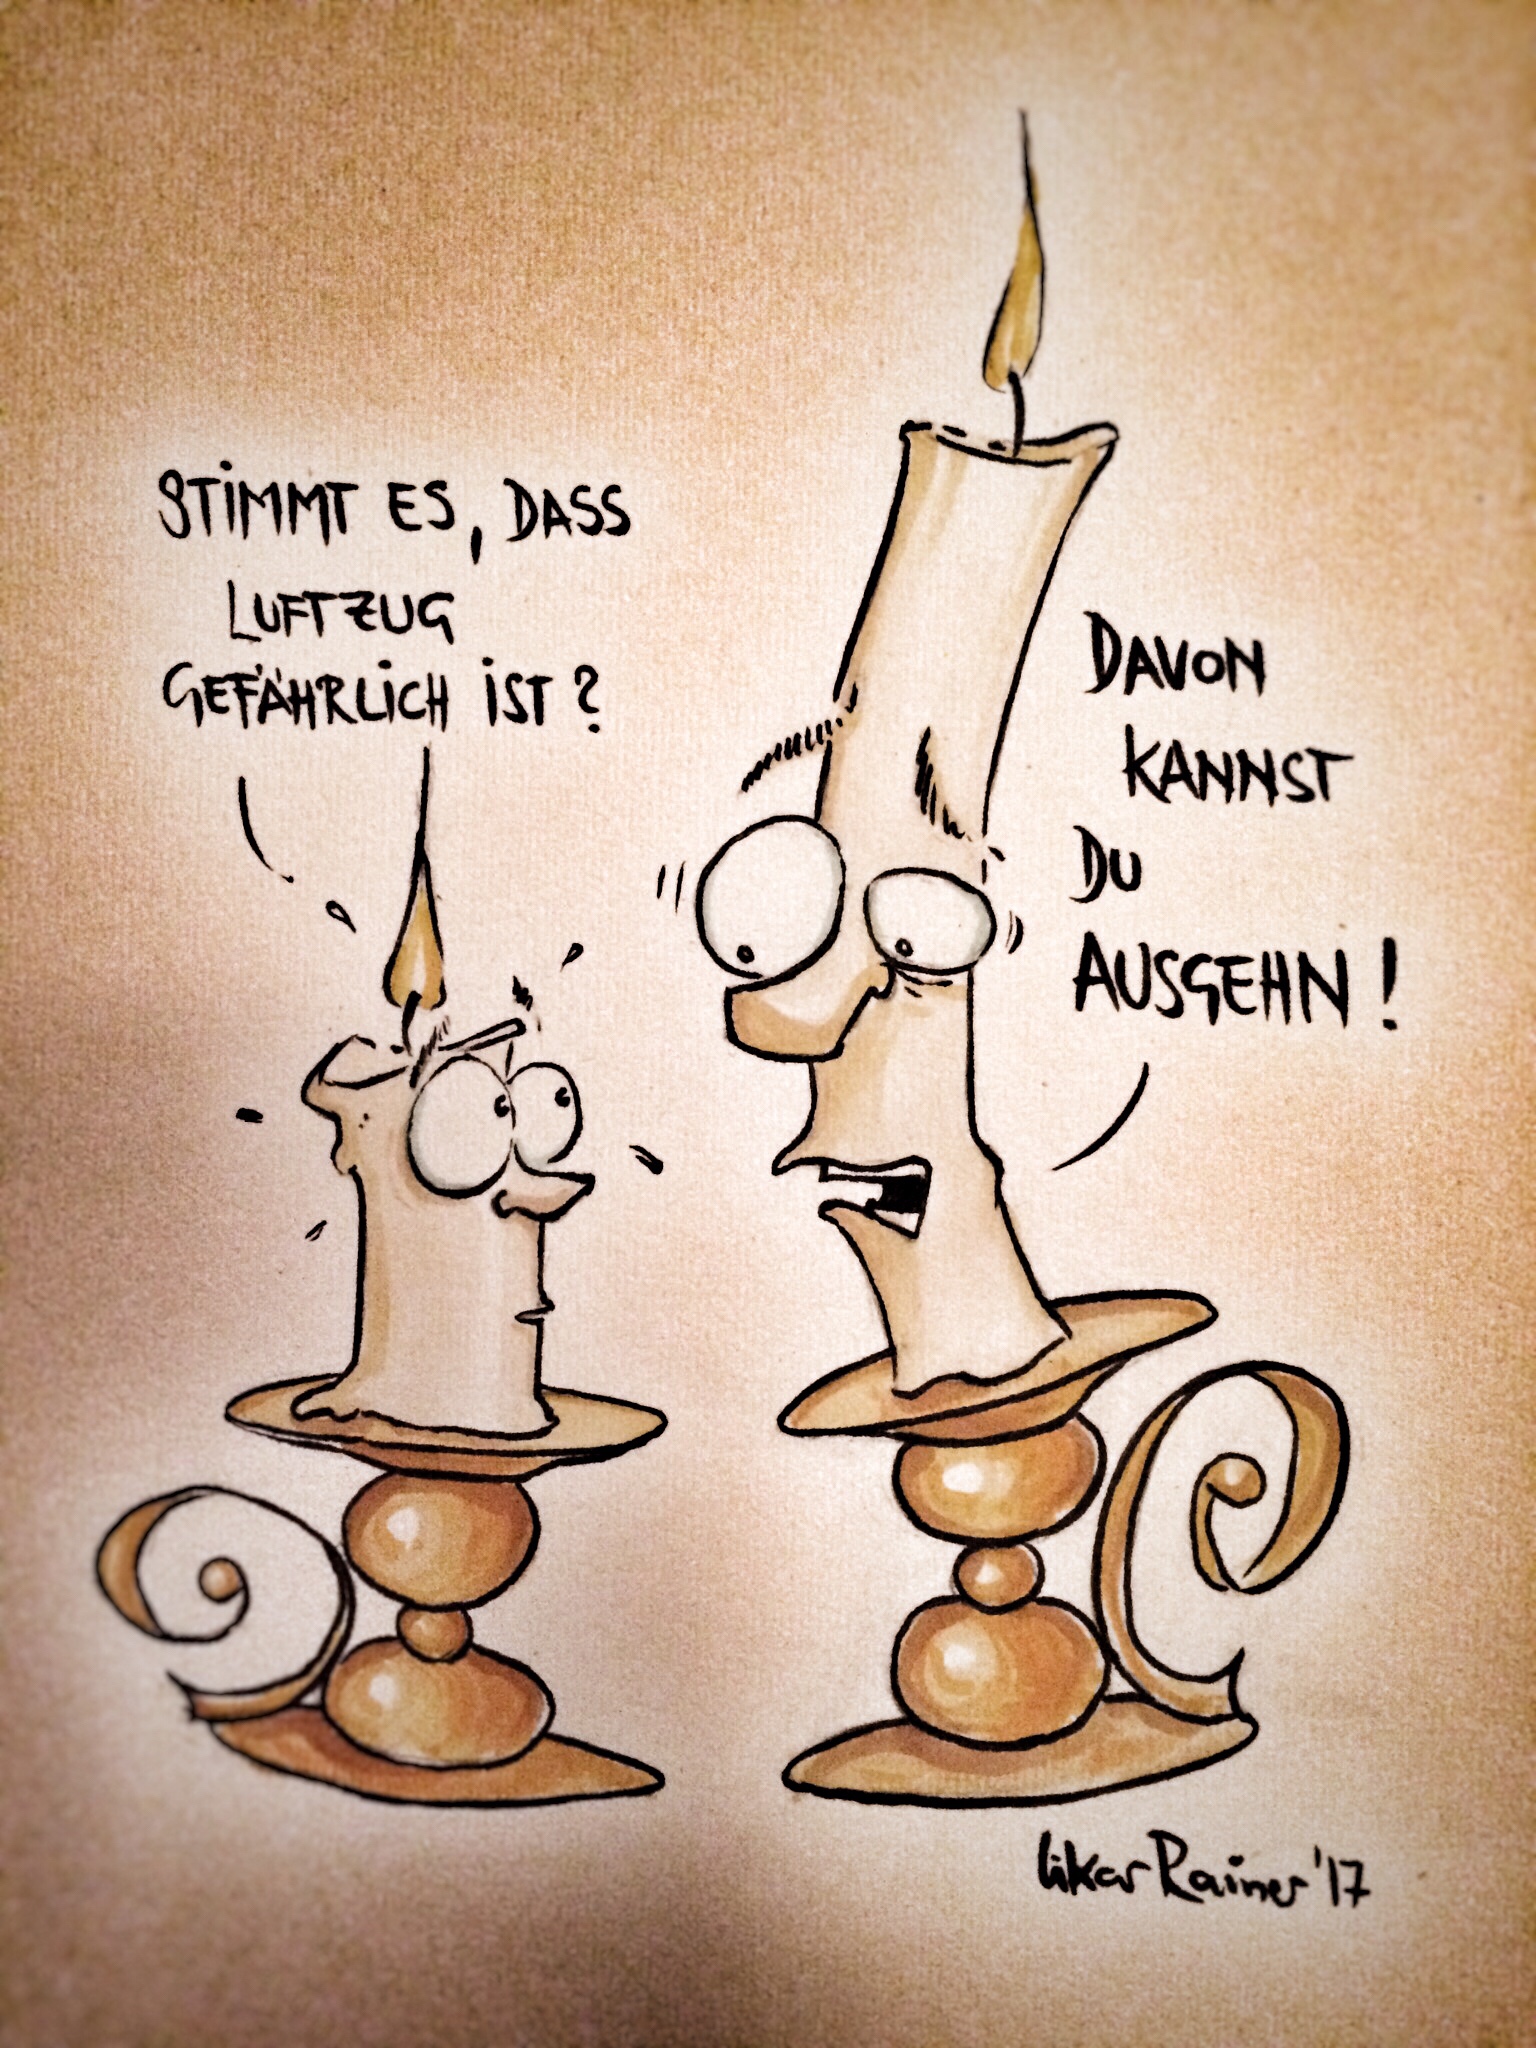 STIMMT ES, DASS
LUFTZUG
GEFÄHRLICH IST?
DAVON
KANNST
DU
AUSGEHN!
Likar Rainer '17